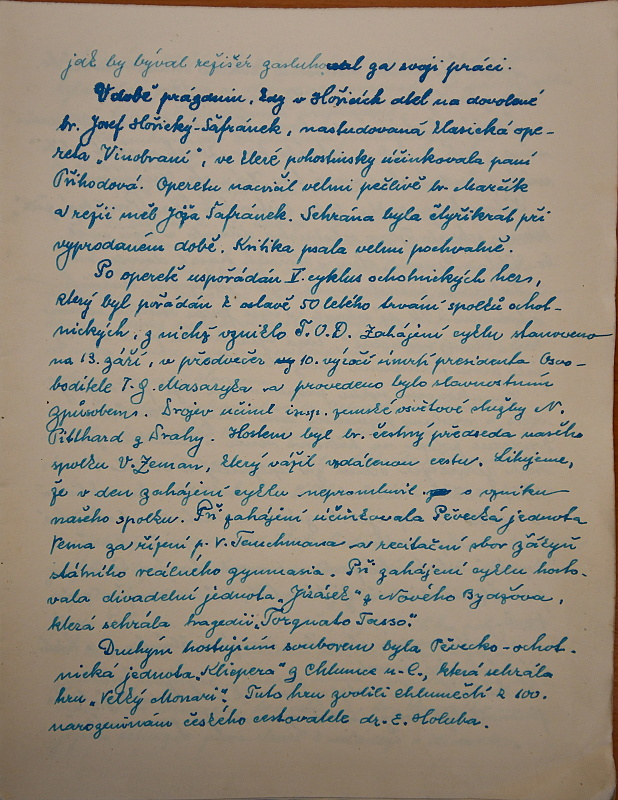 jak by býval režisér zasluhoval za svoji práci.
V době prázdnin, kdy v Hořicích dlel na dovolené
br. Josef Hořický-Šafránek, nastudovaná klasická ope-
reta „Vinobraní", ve které pohostinsky účinkovala paní
Příhodová. Operetu nacvičil velmi pečlivě br. Marčík
a režii měl Jóža Šafránek. Sehrána byla čtyřikrát při
vyprodaném domě. Kritika psala velmi pochvalně.
Po operetě uspořádán V. cyklus ochotnických her,
který byl pořádán k oslavě 50 letého trvání spolků ochot-
nických, z nichž vzniklo T.O.D. Zahájení cyklu stanoveno
na 13. září, v předvečer 10. výročí úmrtí presidenta Osvo-
boditele T. G. Masaryka a provedeno bylo slavnostním
způsobem. Projev učinil insp. zemské osvětové služby N.
Pitthard z Prahy. Hostem byl br. čestný předseda našeho
spolku V. Zeman, který vážil vzdálenou cestu. Litujeme,
že v den zahájení cyklu nepromluvil o vzniku
našeho spolku. Při zahájení účinkovala Pěvecká jednota
Vesna za řízení p. V. Tauchmana a recitační sbor žáků
státního reálného gymnasia. Při zahájení cyklu hosto-
vala divadelní jednota „Jirásek" z Nového Bydžova,
která sehrála tragedii „Torquato Tasso".
Druhým hostujícím souborem byla Pěvecko-ochot-
nická jednota „Klicpera" z Chlumce n. C., která sehrála
hru „Velký Monari". Tuto hru zvolili chlumečtí k 100.
narozeninám českého cestovatele dr. E. Holuba.